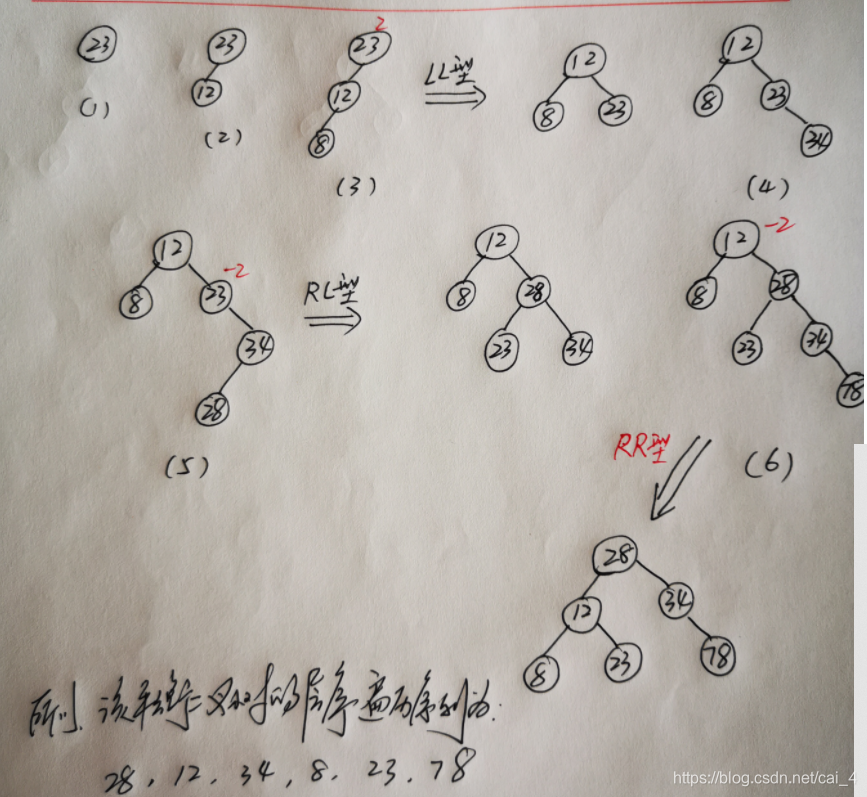 2
23 23 23 LL型 12 12
12 12 8 23 8 23
(1) (2) 8 34
(3) (4)
12 12 12 -2
8 23 -2 RL型 8 28 8 28
34 23 34 23 34
28 78
(5) RR型 (6)
28
12 34
8 23 78
所以, 该平衡二叉树的层序遍历序列为:
28, 12, 34, 8, 23, 78
https://blog.csdn.net/cai_4